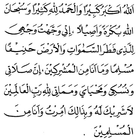 اَللهُ اَكْبَرُ كَبِيْرًا وَالْحَمْدُ لِلّٰهِ كَثِيْرًا وَسُبْحَانَ
اللهِ بُكْرَةً وَاَصِيْلًا . اِنِّى وَجَّهْتُ وَجْهِيَ
لِلَّذِى فَطَرَ السَّمٰوَاتِ وَالْاَرْضَ حَنِيْفًا
مُسْلِمًا وَمَااَنَا مِنَ الْمُشْرِكِيْنَ . اِنَّ صَلَاتِى
وَنُسُكِى وَمَحْيَايَ وَمَمَاتِى لِلّٰهِ رَبِّ الْعَالَمِيْنَ
لَاشَرِيْكَ لَهُ وَبِذَالِكَ اُمِرْتُ وَاَنَا مِنَ
الْمُسْلِمِيْنَ